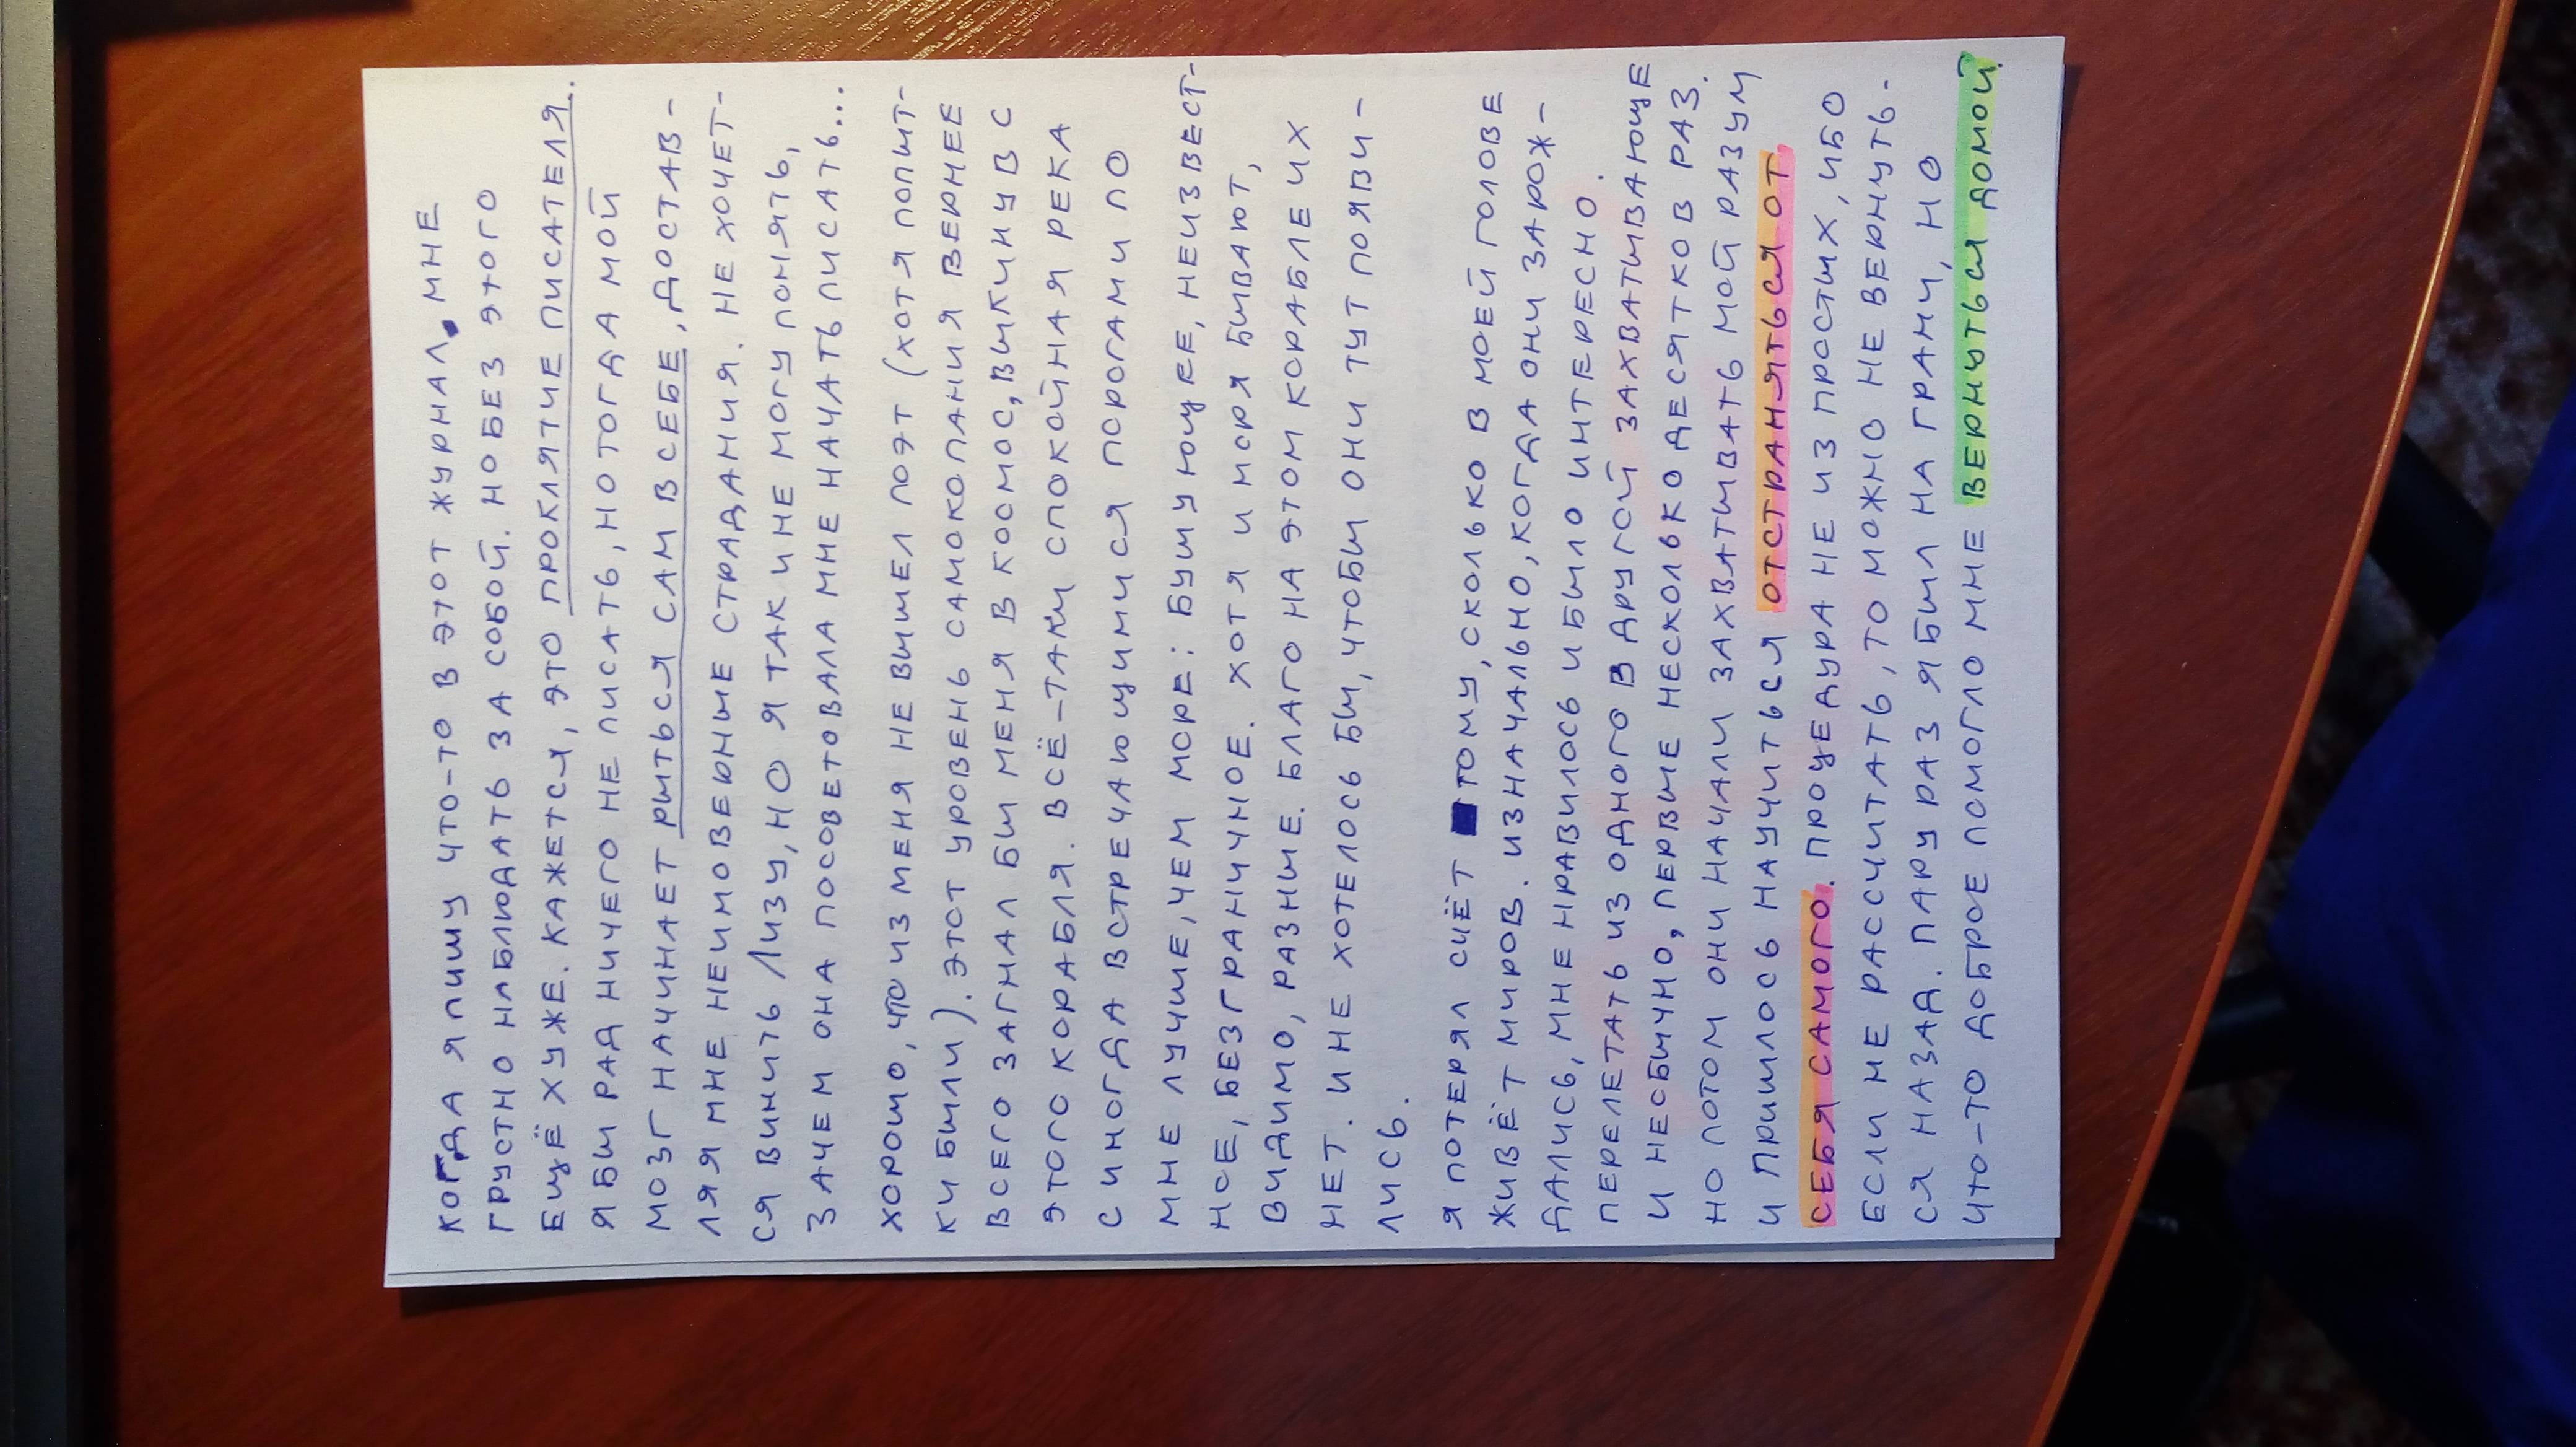 когда я пишу что-то в этот журнал, мне
грустно наблюдать за собой. но без этого
ещё хуже. кажется, это проклятие писателя.
я бы рад ничего не писать, но тогда мой
мозг начинает рыться сам в себе, достав-
ляя мне неимоверные страдания. не хочет-
ся винить Лизу, но я так и не могу понять,
зачем она посоветовала мне начать писать...
хорошо, что из меня не вышел поэт (хотя попыт-
ки были). этот уровень самокопания вернее
всего загнал бы меня в космос, выкинув с
этого корабля. всё-таки спокойная река
с иногда встречающимися порогами по
мне лучше, чем море: бушующее, неизвест-
ное, безграничное. хотя и моря бывают,
видимо, разные. благо на этом корабле их
нет. и не хотелось бы, чтобы они тут появи-
лись.
я потерял счёт тому, сколько в моей голове
живёт миров. изначально, когда они зарож-
дались, мне нравилось и было интересно.
перелетать из одного в другой захватывающе
и необычно, первые несколько десятков раз.
но потом они начали захватывать мой разум
и пришлось научиться отстраняться от
себя самого. процедура не из простых, ибо
если не рассчитать, то можно не вернуть-
ся назад. пару раз я был на грани, но
что-то доброе помогло мне вернуться домой.